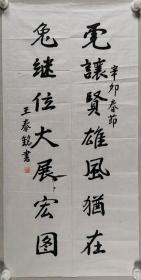 辛卯春节
虎讓賢雄風猶在
兔继位大展宏图
王泰铭書